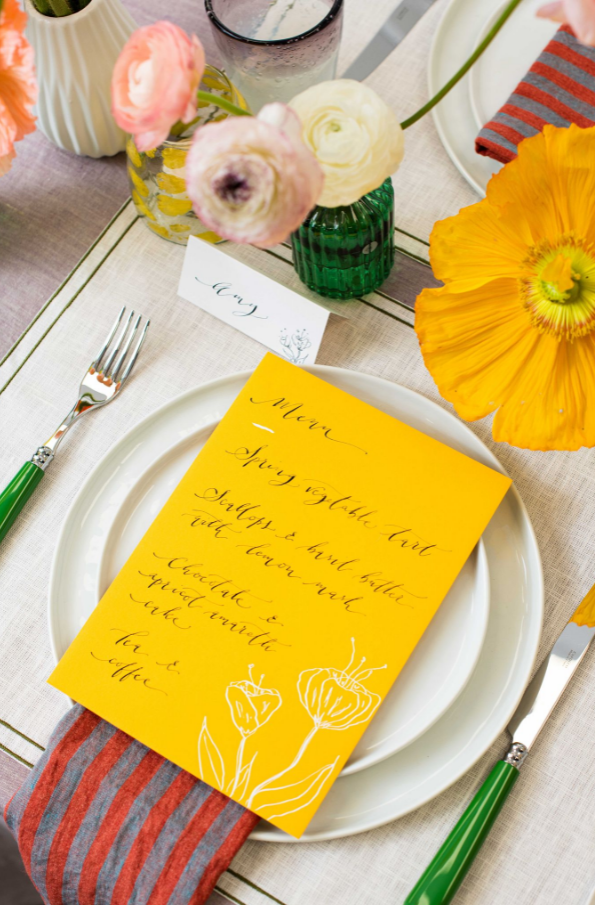 amy
Menu
Spring vegetable tart
Scallops & basil butter
with lemon mash
Chocolate &
apricot amaretti
cake
tea &
coffee